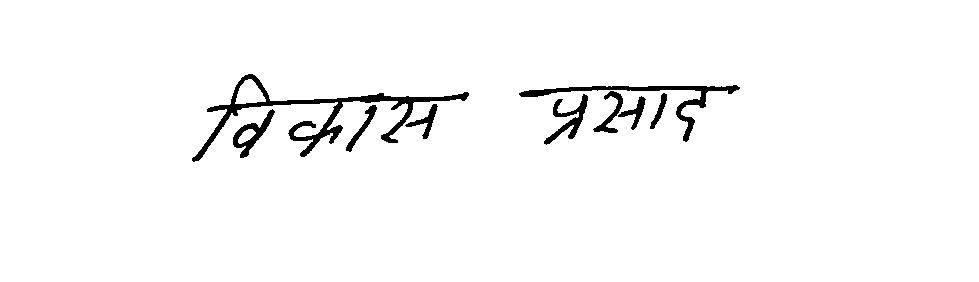 विकास प्रसाद